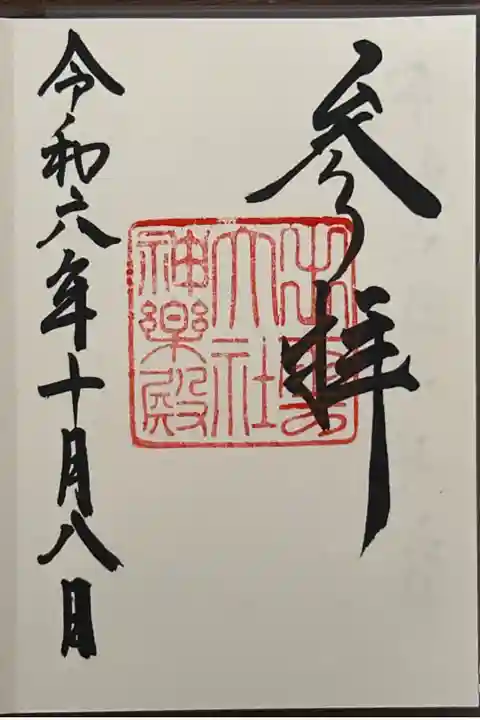 参拝
出雲
大社
神楽殿
令和六年十月八日